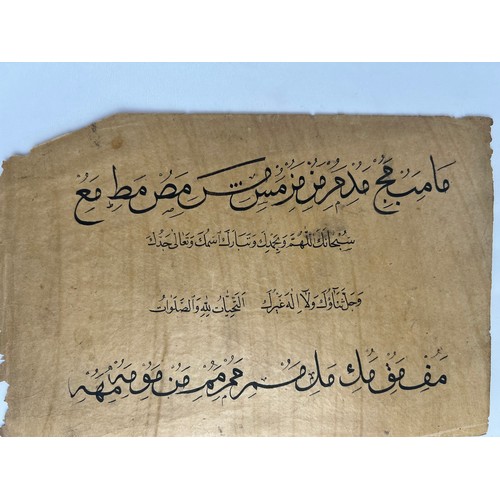 ما مب مج مد مر مز مس مش مص مط مع
سبحانك اللهم وبحمدك وتبارك اسمك وتعالى جدك
وجل ثناؤك ولا اله غيرك التحيات لله والصلوات
مف مق مك مل مم من مو مه